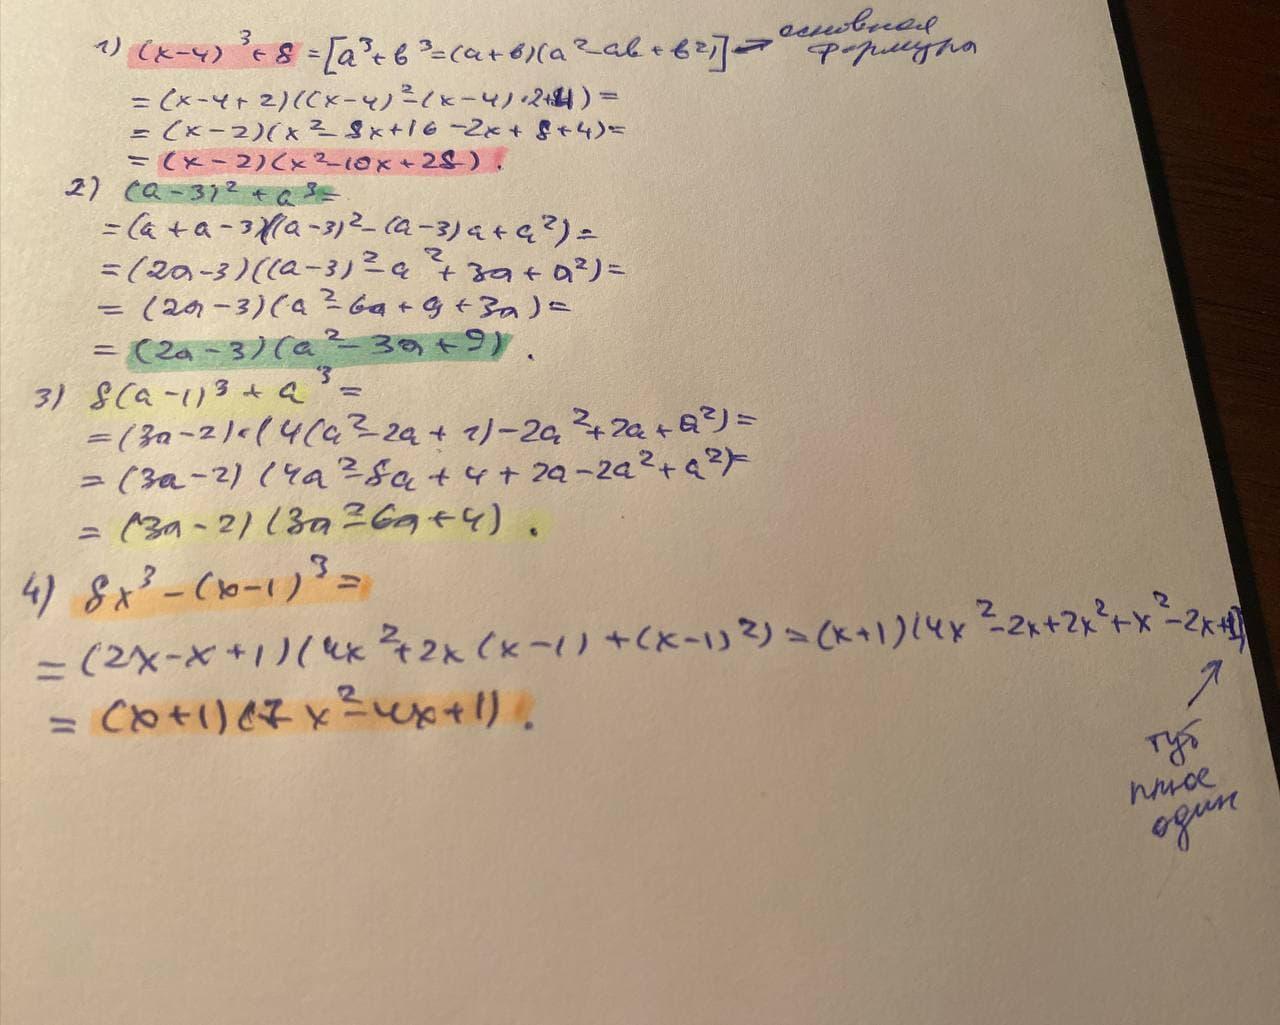 1) (x-4)³+8 = [a³+b³=(a+b)(a²-ab+b²)] → основная формула
= (x-4+2)((x-4)²-(x-4)·2+4) =
= (x-2)(x²-8x+16-2x+8+4)=
= (x-2)(x²-10x+28).
2) (a-3)²+a³=
=(a+a-3)((a-3)²-(a-3)a+a²)=
=(2a-3)((a-3)²-a²+3a+a²)=
= (2a-3)(a²-6a+9+3a)=
= (2a-3)(a²-3a+9).
3) 8(a-1)³+a³=
=(3a-2)·(4(a²-2a+1)-2a²+2a+a²)=
= (3a-2)(4a²-8a+4+2a-2a²+a²)=
= (3a-2)(3a²-6a+4).
4) 8x³-(x-1)³=
= (2x-x+1)(4x²+2x(x-1)+(x-1)²)=(x+1)(4x²-2x+2x²+x²-2x+1)
= (x+1)(7x²-4x+1).
тут
плюс
один